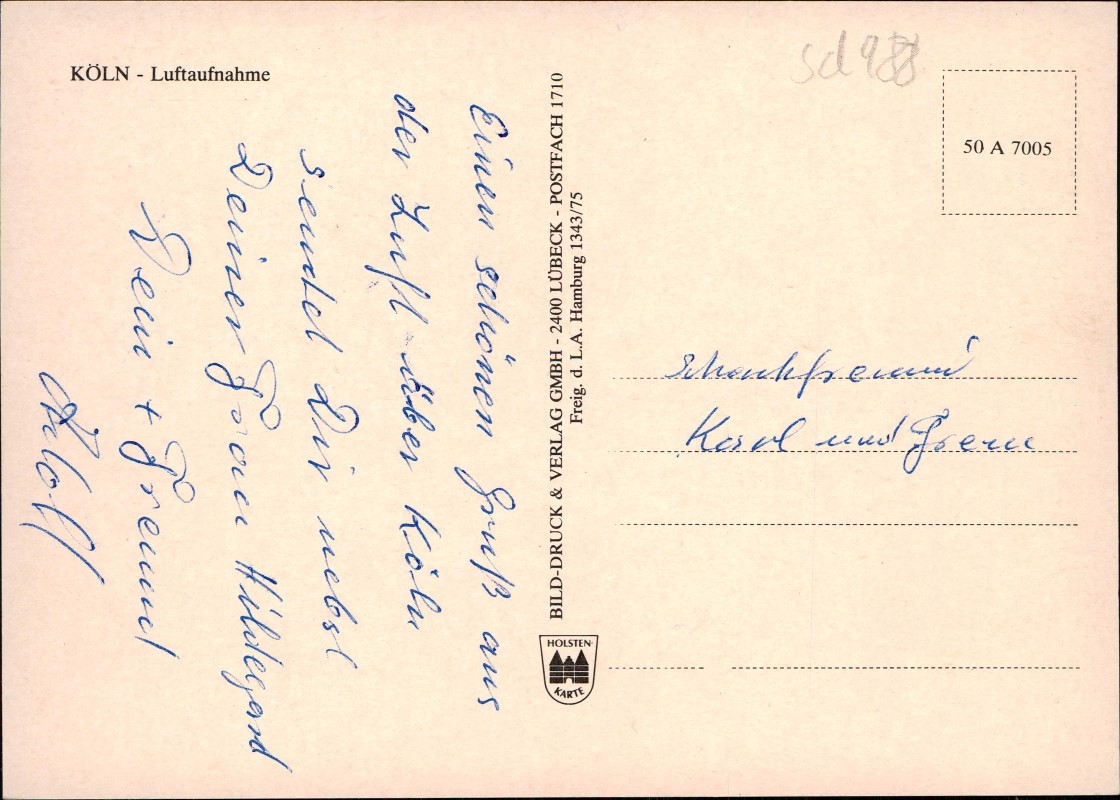 KÖLN - Luftaufnahme
Einen schönen Gruß aus
der Luft über Köln
sendet Dir nebst
Deiner Frau Hildegard
Dein + Freund
Adolf
BILD-DRUCK & VERLAG GMBH - 2400 LÜBECK - POSTFACH 1710
Freig. d. L.A. Hamburg 1343/75
HOLSTEN-
KARTE
sd 988
50 A 7005
Schachfreund
Karl und Frau